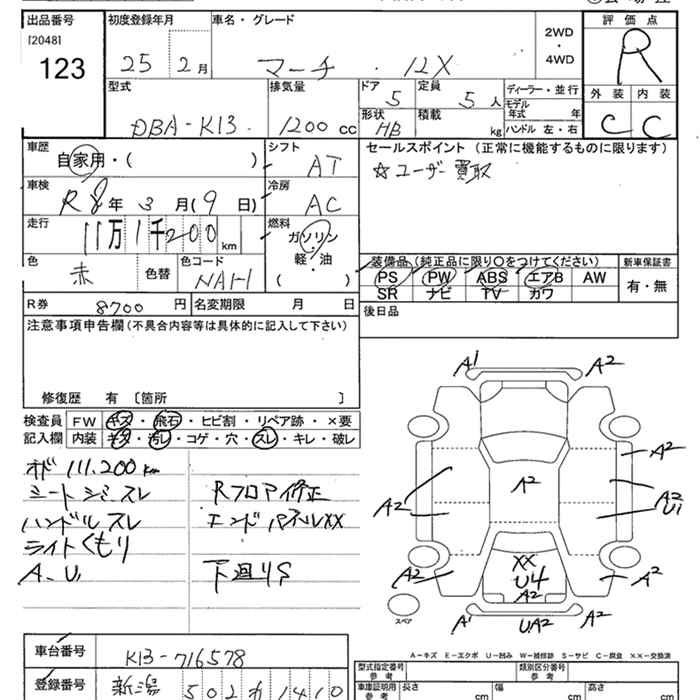 出品番号 初度登録年月 車名・グレード 評価点
[2048]
123 25 2月 マーチ ・12X 2WD・4WD R
外装 内装
C C
型式 排気量 ドア 定員 ディーラー・並行
DBA-K13 1200cc 5 5人 モデル年式 年
形状 積載 ハンドル 左・右
HB kg
車歴 シフト セールスポイント(正常に機能するものに限ります)
自家用・( ) AT ☆ユーザー買取
車検 冷房
R8年3月(9日) AC
走行 燃料
11万1千200km ガソリン
軽・油
( )
色 色替 色コード 装備品(純正品に限り○をつけてください) 新車保証書
赤 NAH PS PW ABS エアB AW 有・無
SR ナビ TV カワ
R券 8700円 名変期限 月 日 後日品
注意事項申告欄(不具合内容等は具体的に記入して下さい)
修復歴 有 〔箇所 〕
検査員 FW キズ・飛石・ヒビ割・リペア跡・×要
記入欄 内装 キズ・汚レ・コゲ・穴・スレ・キレ・破レ
オド 111.200km
シートシミ.スレ Rフロア修正
ハンドルスレ エンドパネルXX
ライトくもり
A.U 下廻りS
A1 A2
A2
A2 A2 A2
U1
XX
A2 U4 A2
A2
スペア A1 UA2 A2
A-キズ E-エクボ U-凹み W-補修跡 S-サビ C-腐食 XX-交換済
車台番号 K13-716578 型式指定番号 参考 類別区分番号 参考
登録番号 新潟 502 か 1410 車庫証明用 参考 長さ cm 幅 cm 高さ cm